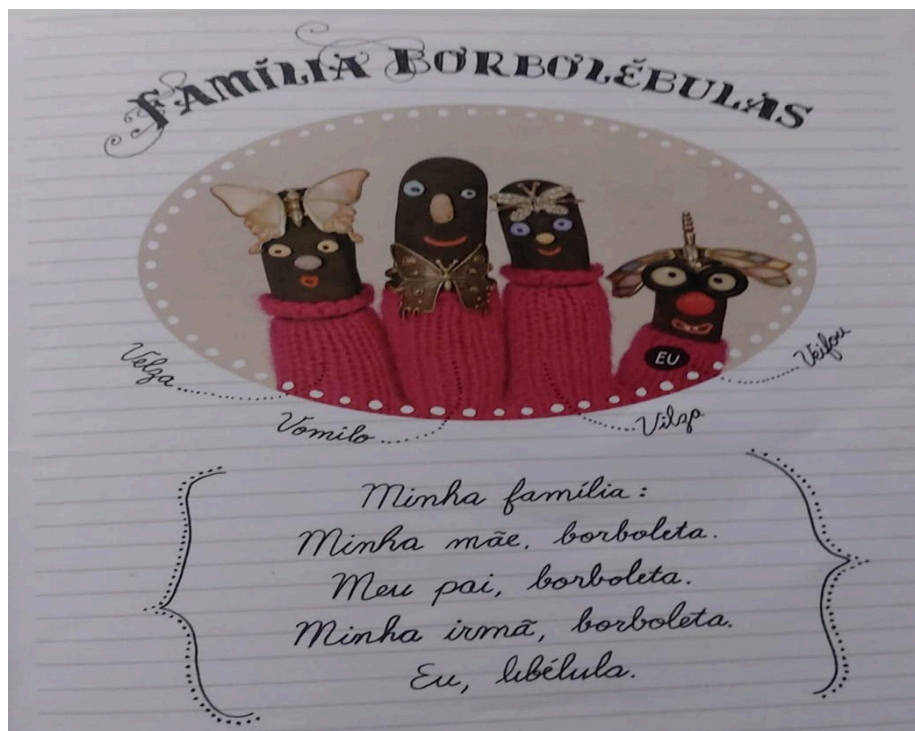 FAMÍLIA BORBOLÉBULAS
EU
Velza
Vomilo
Vilza
Veifou
Minha família:
Minha mãe, borboleta.
Meu pai, borboleta.
Minha irmã, borboleta.
Eu, libélula.